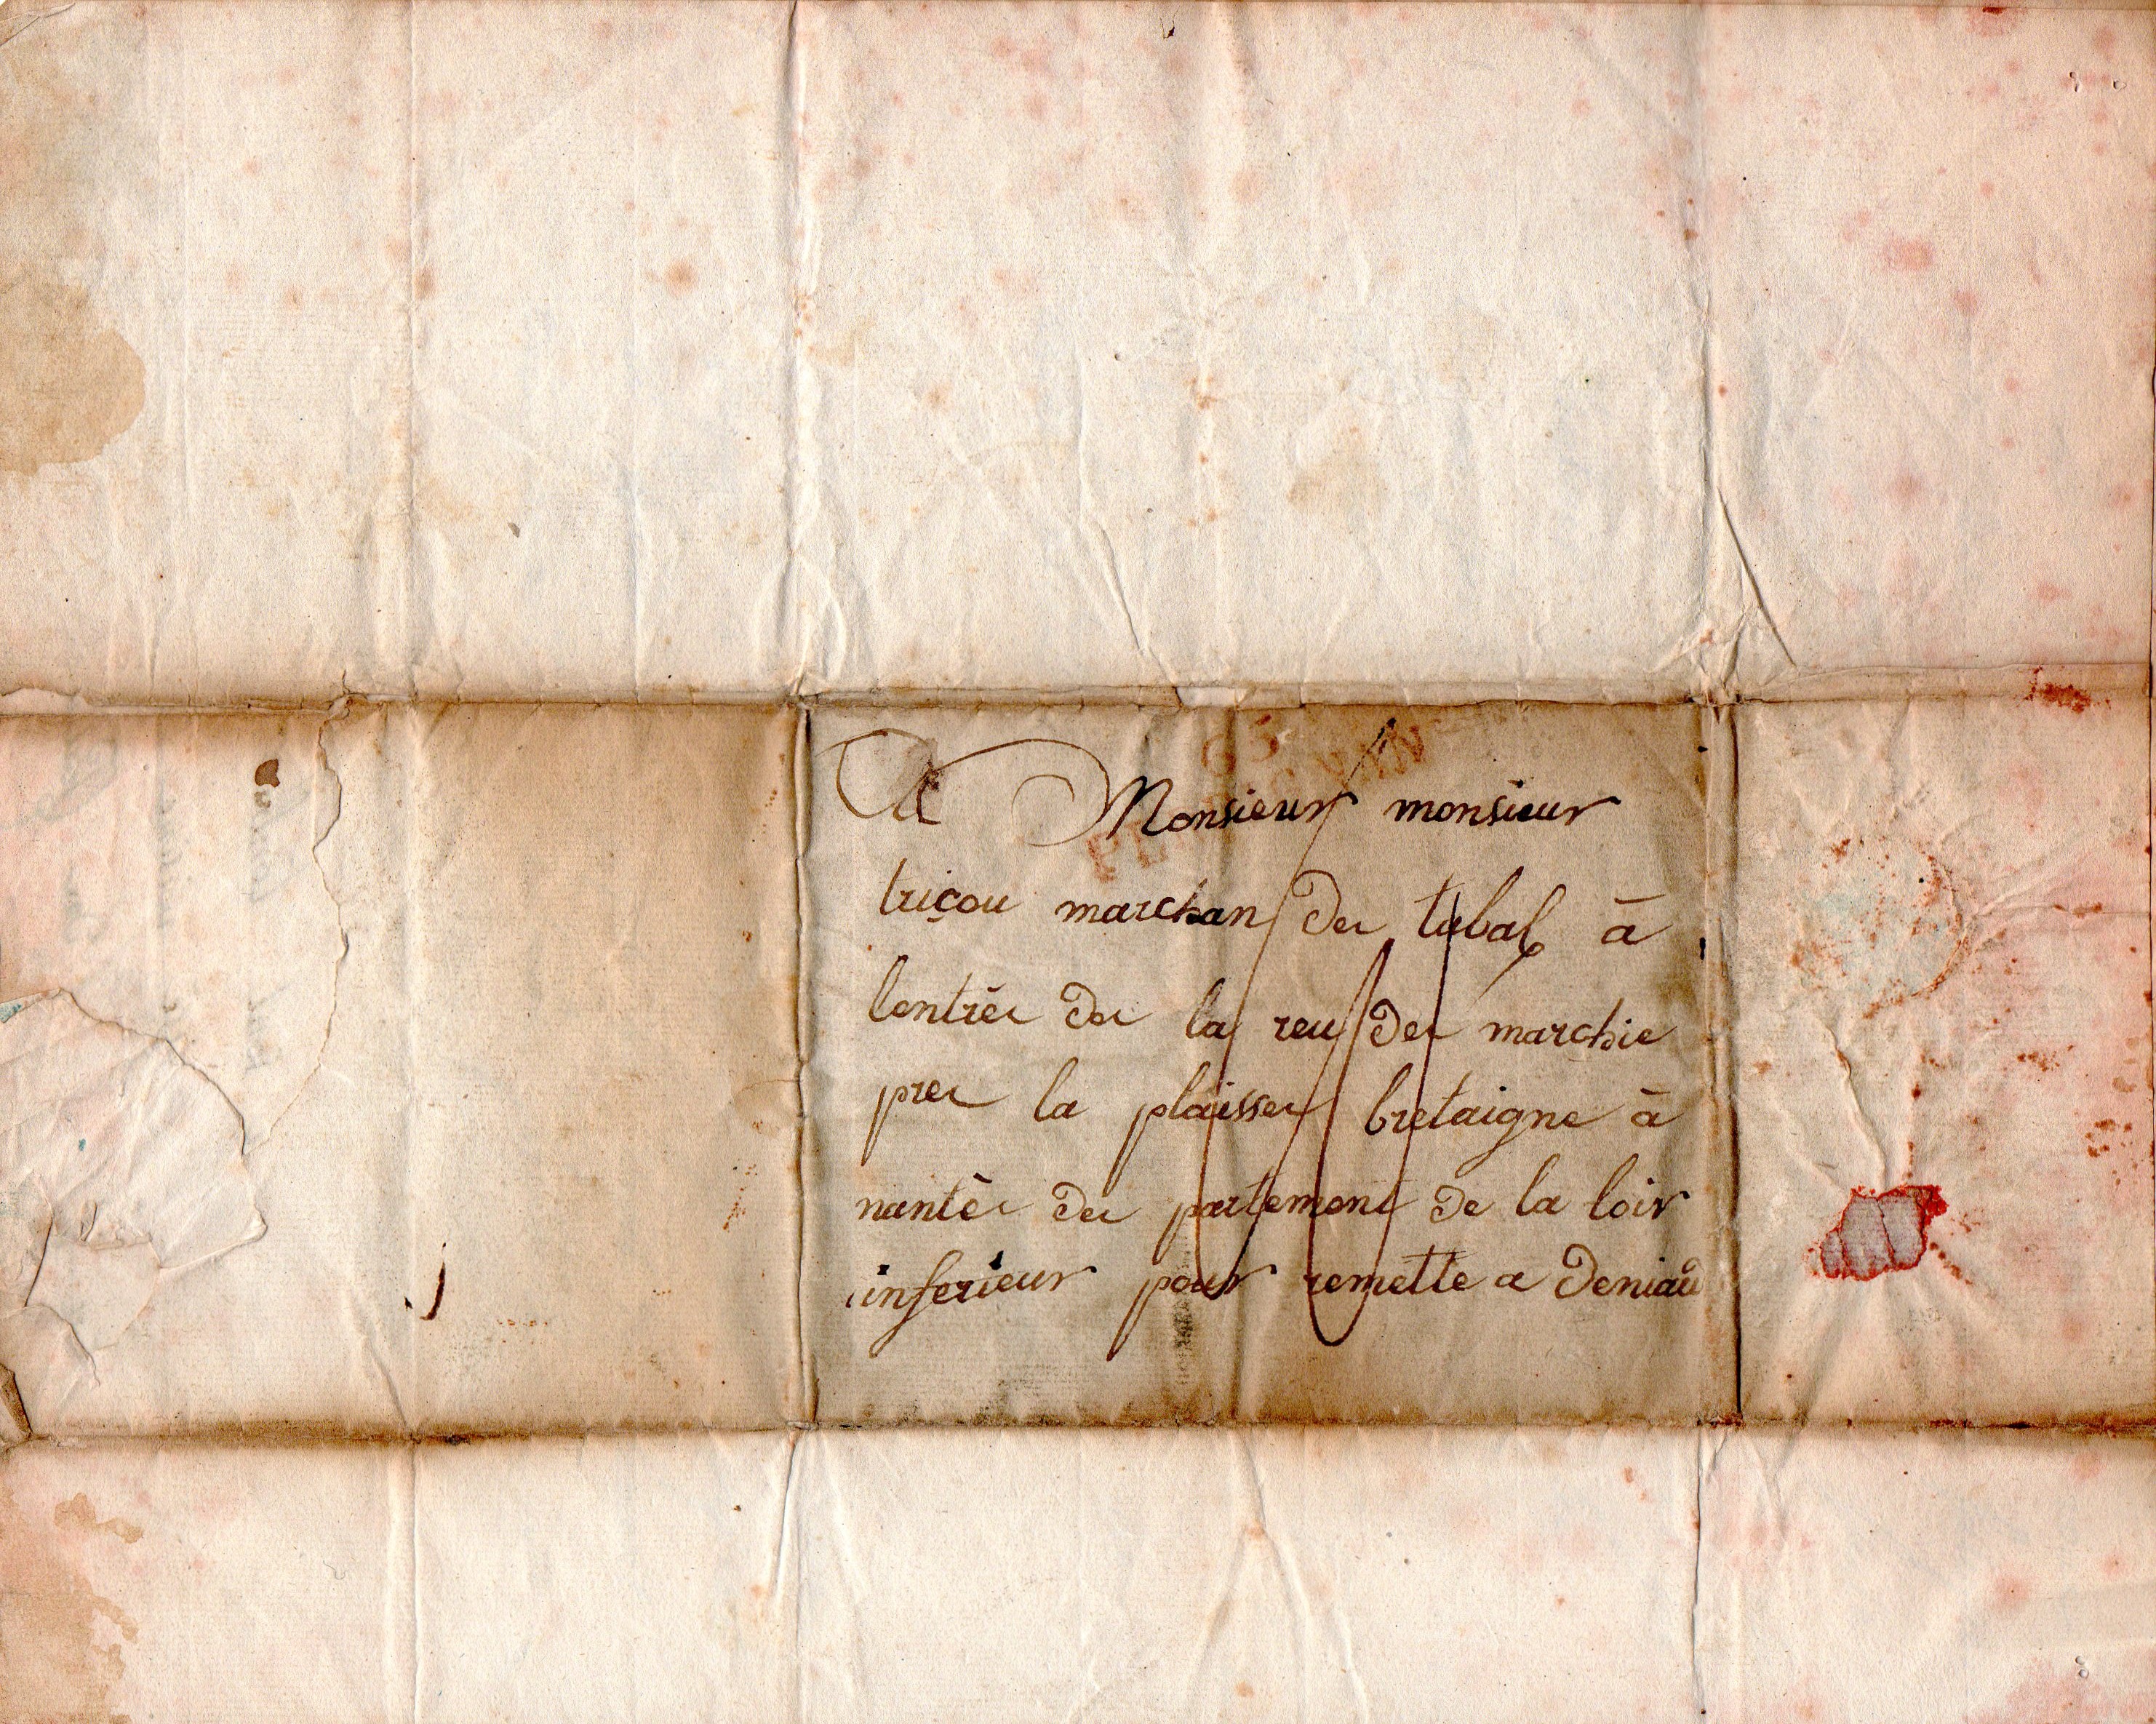 65
A Monsieur monsieur
triçou marchan de tabal à
lentrée de la reu de marchie
pre la plaisse bretaigne à
nantée de partement de la loir
inferieur pour remette a deniau